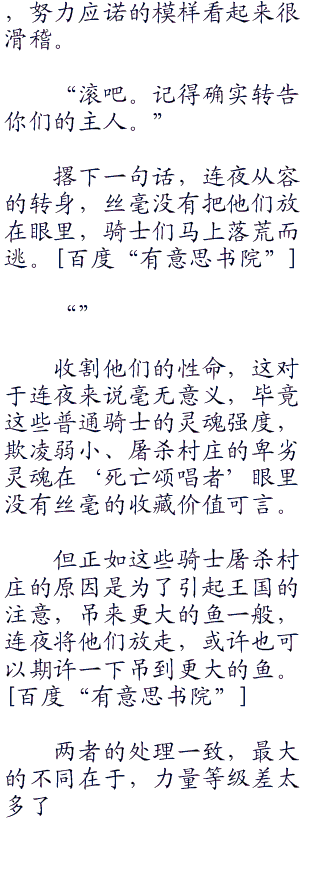 ，努力应诺的模样看起来很
滑稽。
“滚吧。记得确实转告
你们的主人。”
撂下一句话，连夜从容
的转身，丝毫没有把他们放
在眼里，骑士们马上落荒而
逃。[百度“有意思书院”]
“”
收割他们的性命，这对
于连夜来说毫无意义，毕竟
这些普通骑士的灵魂强度，
欺凌弱小、屠杀村庄的卑劣
灵魂在‘死亡颂唱者’眼里
没有丝毫的收藏价值可言。
但正如这些骑士屠杀村
庄的原因是为了引起王国的
注意，吊来更大的鱼一般，
连夜将他们放走，或许也可
以期许一下吊到更大的鱼。
[百度“有意思书院”]
两者的处理一致，最大
的不同在于，力量等级差太
多了